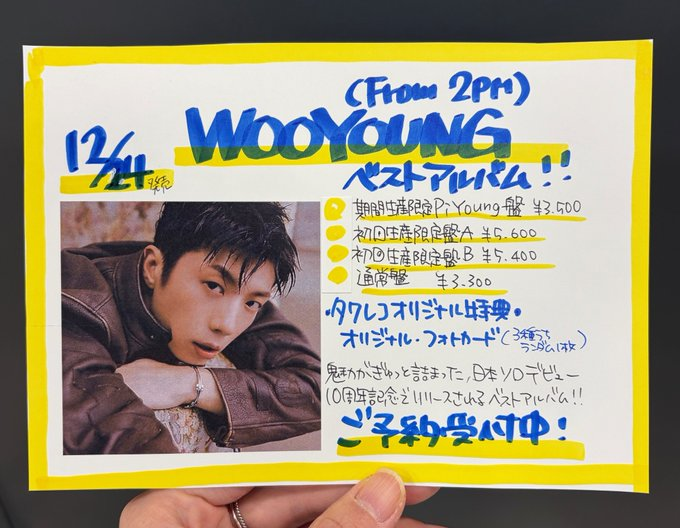 (From 2PM)
WOOYOUNG
12/24 発売
ベストアルバム!!
期間生産限定Pi Young盤 ¥3.500
初回生産限定盤A ¥5.600
初回生産限定盤B ¥5.400
通常盤 ¥3.300
・タワレコオリジナル特典・
オリジナル・フォトカード(3種うちランダム1枚)
魅力がぎゅっと詰まった、日本ソロデビュー
10周年記念でリリースされるベストアルバム!!
ご予約受付中!